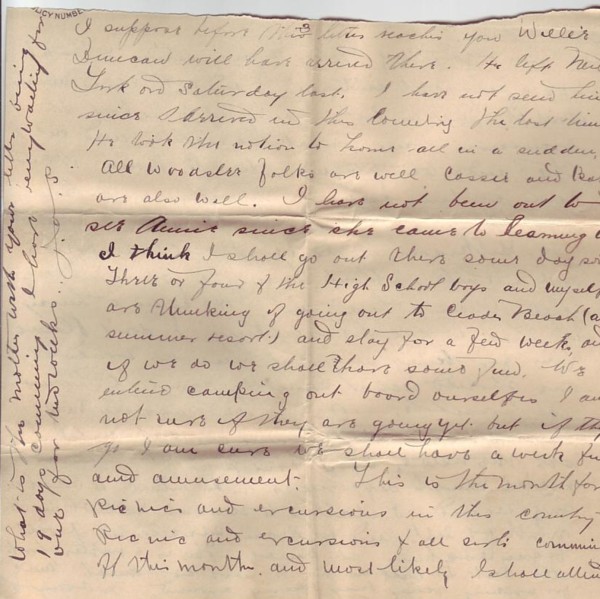 LICY NUMBER
I suppose before this letter reaches you Willie
Duncan will have arrived there. He left New
York ord Saturday last. I have not seen him
since I arrived in this Country the last time
He took the notion to home all in a sudden.
All Wooster folks are well Cassie and
are also well. I have not been out to
see Annie since she came to Leaming
I think I shall go out there some day
Three or four of the High School boys and myself
are thinking of going out to Cedar Beach (a
summer resort) and stay for a few weeks, and
if we do we shall have some fun. We
intend camping out board ourselves I am
not sure if they are going yet. but if they
go I am sure we shall have a week fun
and amusement. This is the month for
Picnics and excursions in this country
Picnic and excursions & all sorts comming
off this month. and most likely I shall attend
What is the matter with your letter being
19 days comming I have been waiting for
one for two weeks.